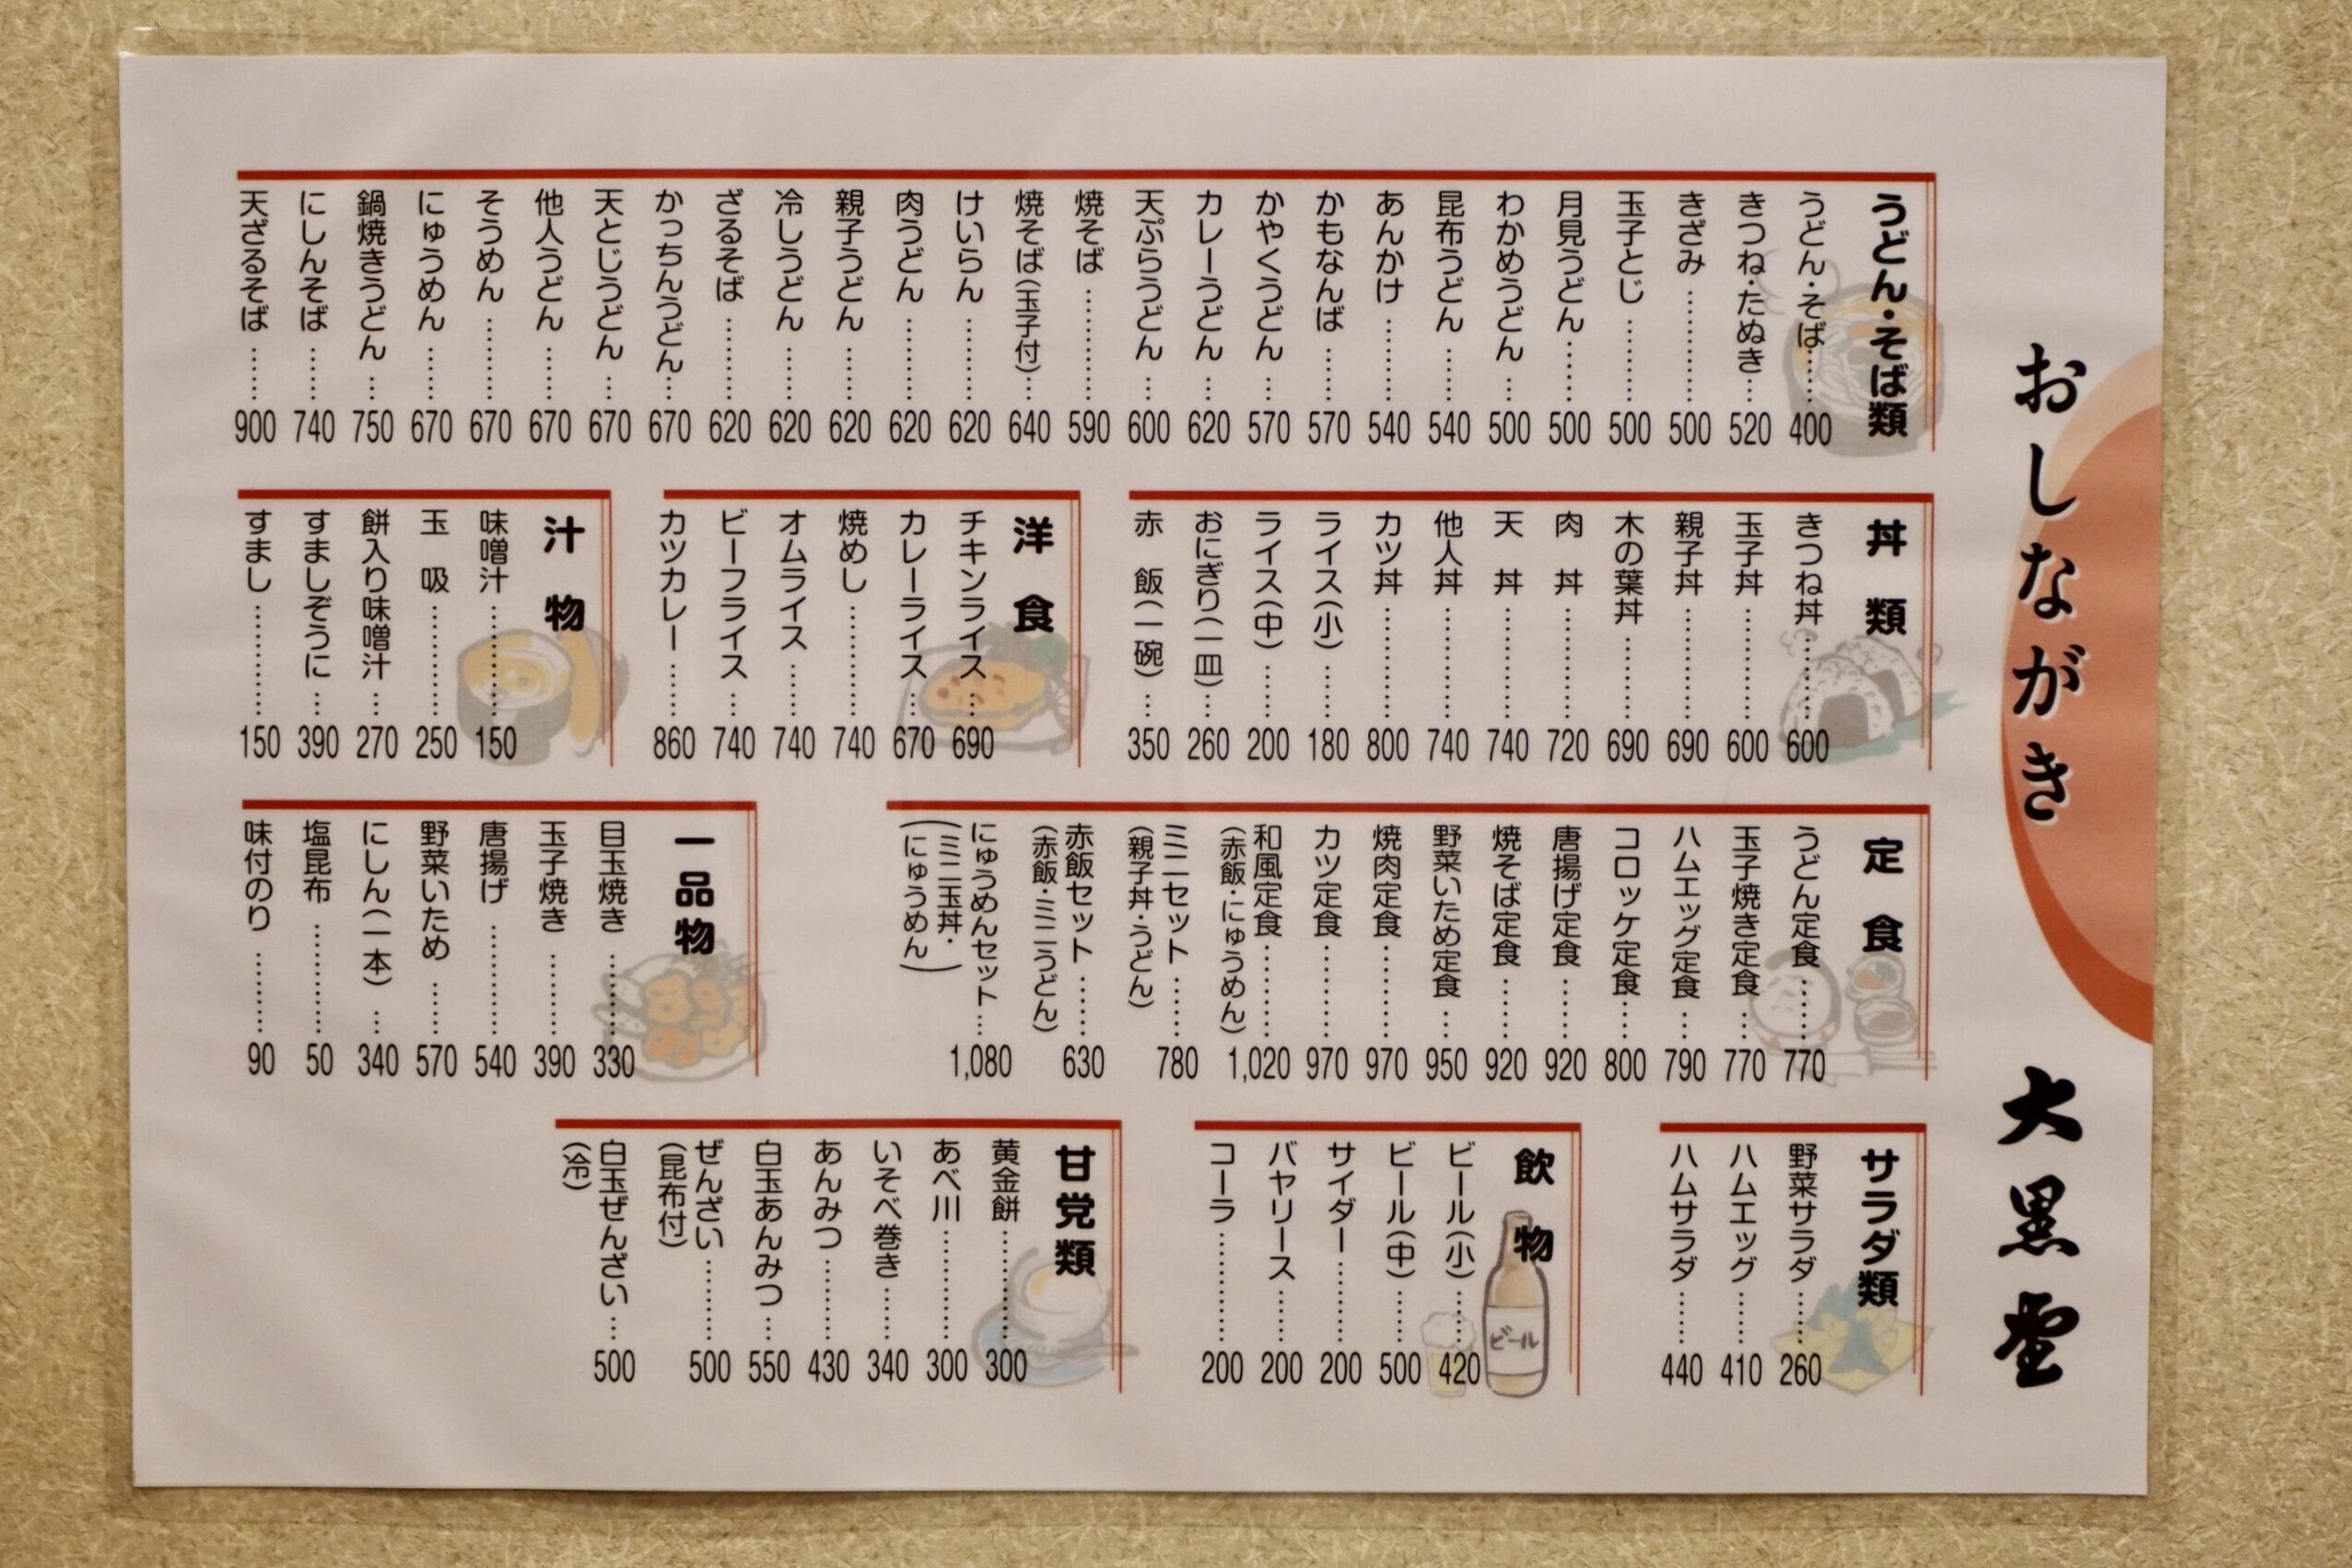 おしながき
大黒堂
うどん・そば類
うどん・そば……400
きつね・たぬき…520
きざみ…………500
玉子とじ………500
月見うどん……500
わかめうどん…500
昆布うどん……540
あんかけ………540
かもなんば……570
かやくうどん…570
カレーうどん…620
天ぷらうどん…600
焼そば…………590
焼そば(玉子付)…640
けいらん………620
肉うどん………620
親子うどん……620
冷しうどん……620
ざるそば………620
かっちんうどん…670
天とじうどん…670
他人うどん……670
そうめん………670
にゅうめん……670
鍋焼きうどん…750
にしんそば……740
天ざるそば……900
丼類
きつね丼………600
玉子丼…………600
親子丼…………690
木の葉丼………690
肉丼…………720
天丼…………740
他人丼…………740
カツ丼…………800
ライス(小)……180
ライス(中)……200
おにぎり(一皿)…260
赤飯(一碗)…350
洋食
チキンライス…690
カレーライス…670
焼めし…………740
オムライス……740
ビーフライス…740
カツカレー……860
汁物
味噌汁…………150
玉吸…………250
餅入り味噌汁…270
すましぞうに…390
すまし…………150
定食
うどん定食……770
玉子焼き定食…770
ハムエッグ定食…790
コロッケ定食…800
唐揚げ定食……920
焼そば定食……920
野菜いため定食…950
焼肉定食………970
カツ定食………970
和風定食………1,020
(赤飯・にゅうめん)
ミニセット……780
(親子丼・うどん)
赤飯セット……630
(赤飯・ミニうどん)
にゅうめんセット…1,080
(ミニ玉丼・
にゅうめん)
一品物
目玉焼き………330
玉子焼き………390
唐揚げ…………540
野菜いため……570
にしん(一本)…340
塩昆布…………50
味付のり………90
サラダ類
野菜サラダ……260
ハムエッグ……410
ハムサラダ……440
飲物
ビール(小)……420
ビール(中)……500
サイダー………200
バヤリース……200
コーラ…………200
ビール
甘党類
黄金餅…………300
あべ川…………300
いそべ巻き……340
あんみつ………430
白玉あんみつ…550
ぜんざい………500
(昆布付)
白玉ぜんざい…500
(冷)